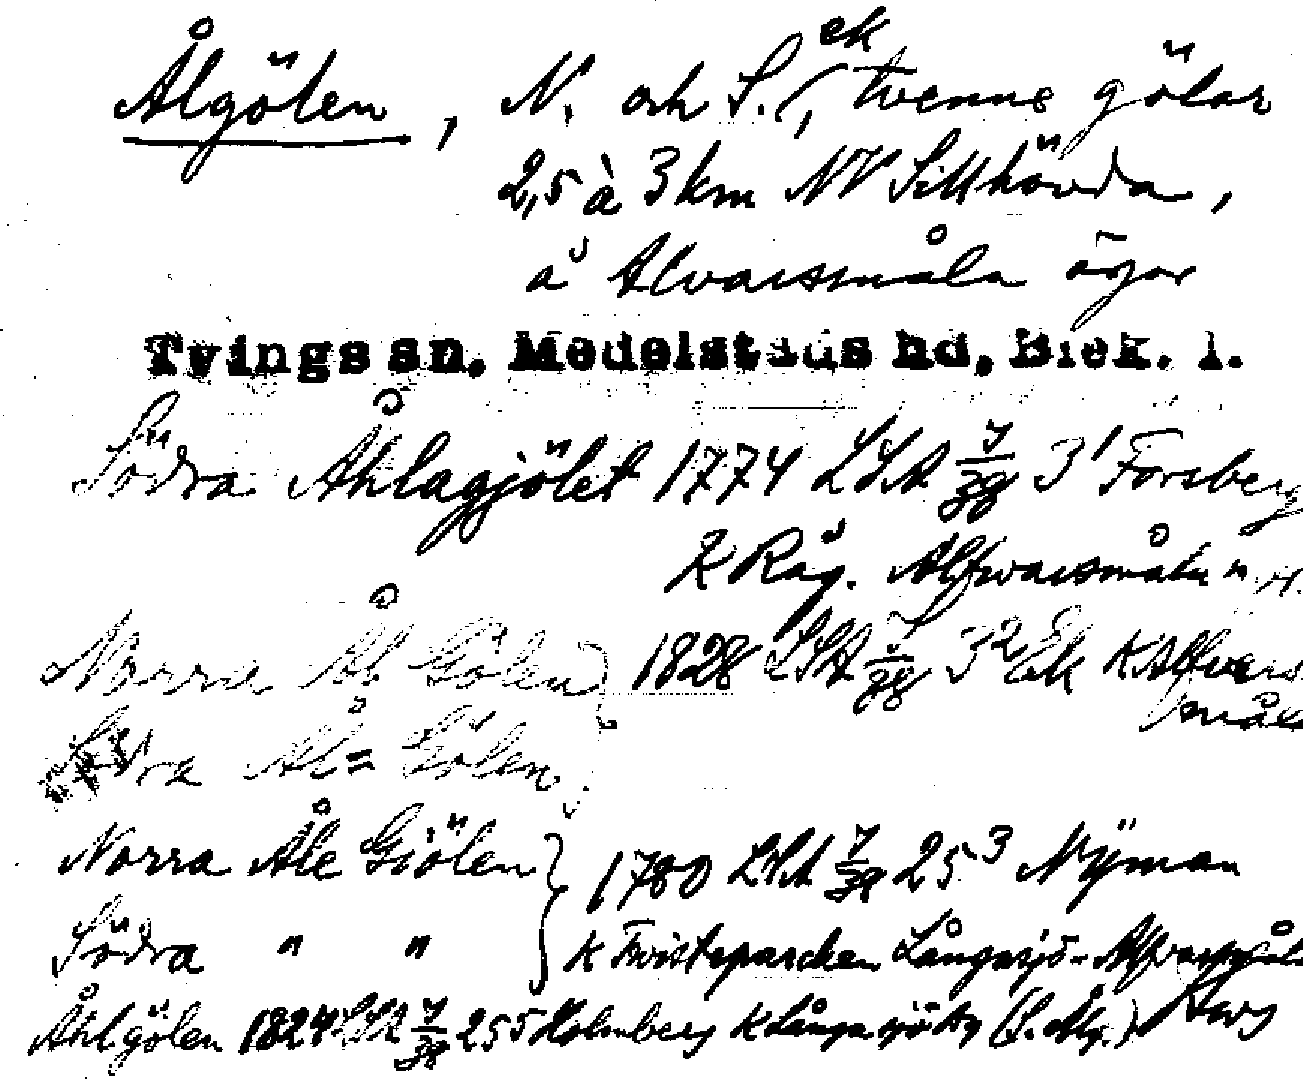 ek
Ålgölen, N. och S., tvenne gölar
2,5 à 3 km NV Sillhövda,
å Alvarsmåla ägor
Tvings sn. Medelstads hd, Blek. l.
Södra Åhlagjölet 1774 LSA 3¹ Forsberg
K Råg. Alfwarsmåla
Norra Ål Gölen } 1828 LSA 3² Ek K Alfvars
måla
Södra Ål= Gölen
Norra Åle Giölen } 1780 LSA 25³ Nÿman
Södra " " K Twisteparcken Långasjö-Alfvarsmåla
Åhlgölen 1824 LSA 255 Holmberg K Långasjö äg (S. Alg.)